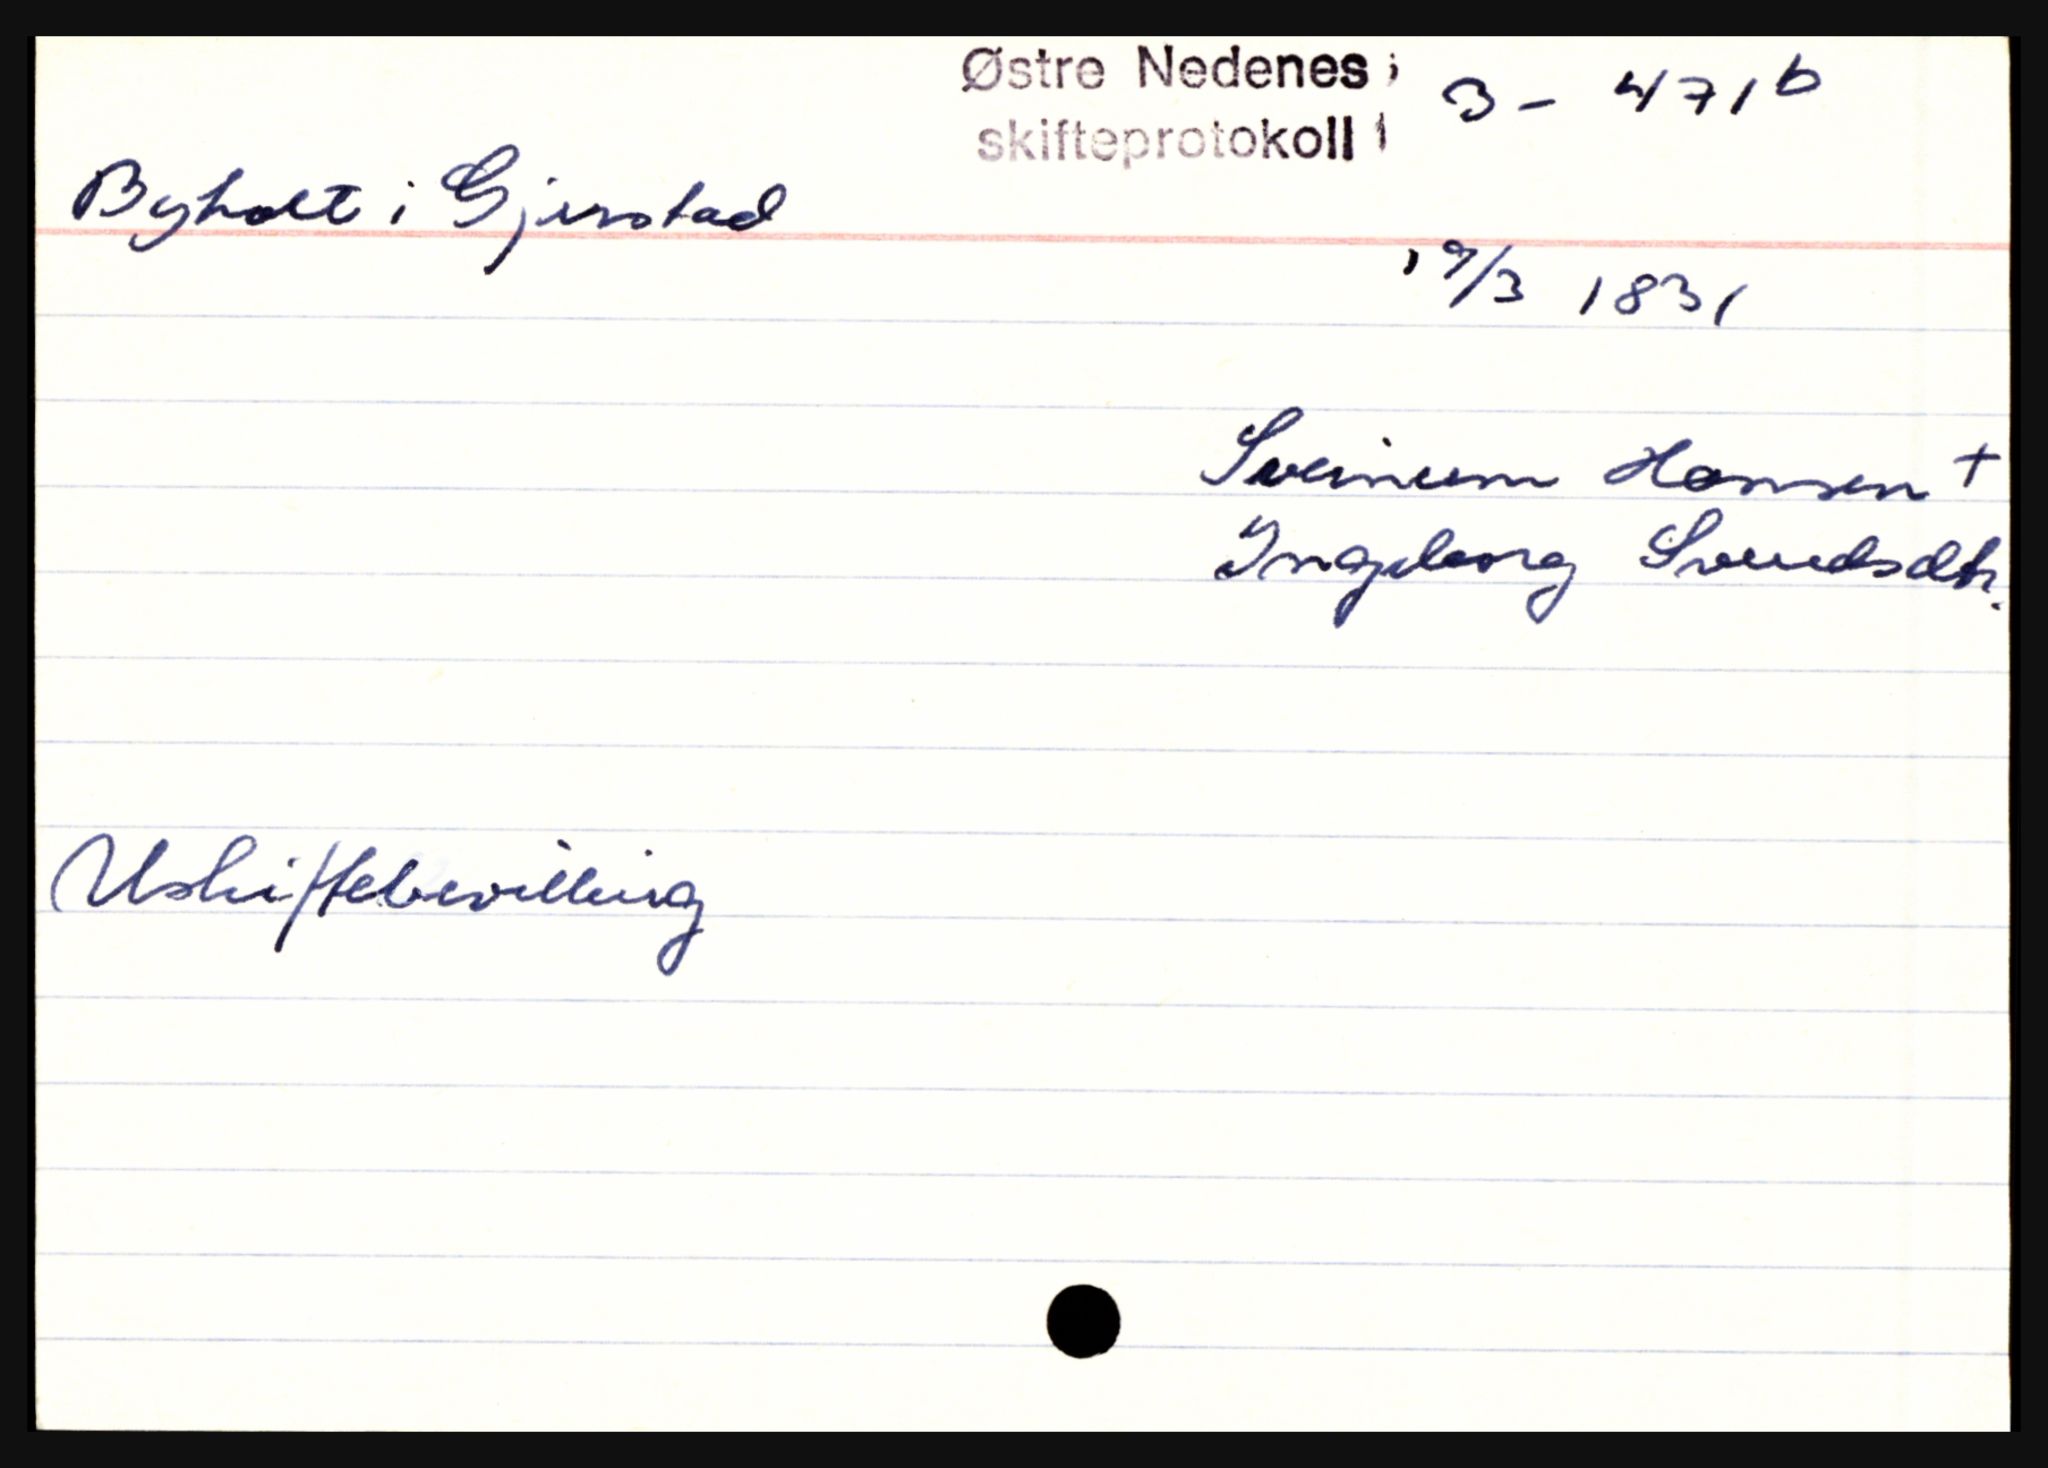 Østre Nedenes
skifteprotokoll
3 - 471b
Byholt i Gjerstad
19/3 1831
Sveinum Hansen +
Ingeborg Svendsdtr.
Uskiftebevilling